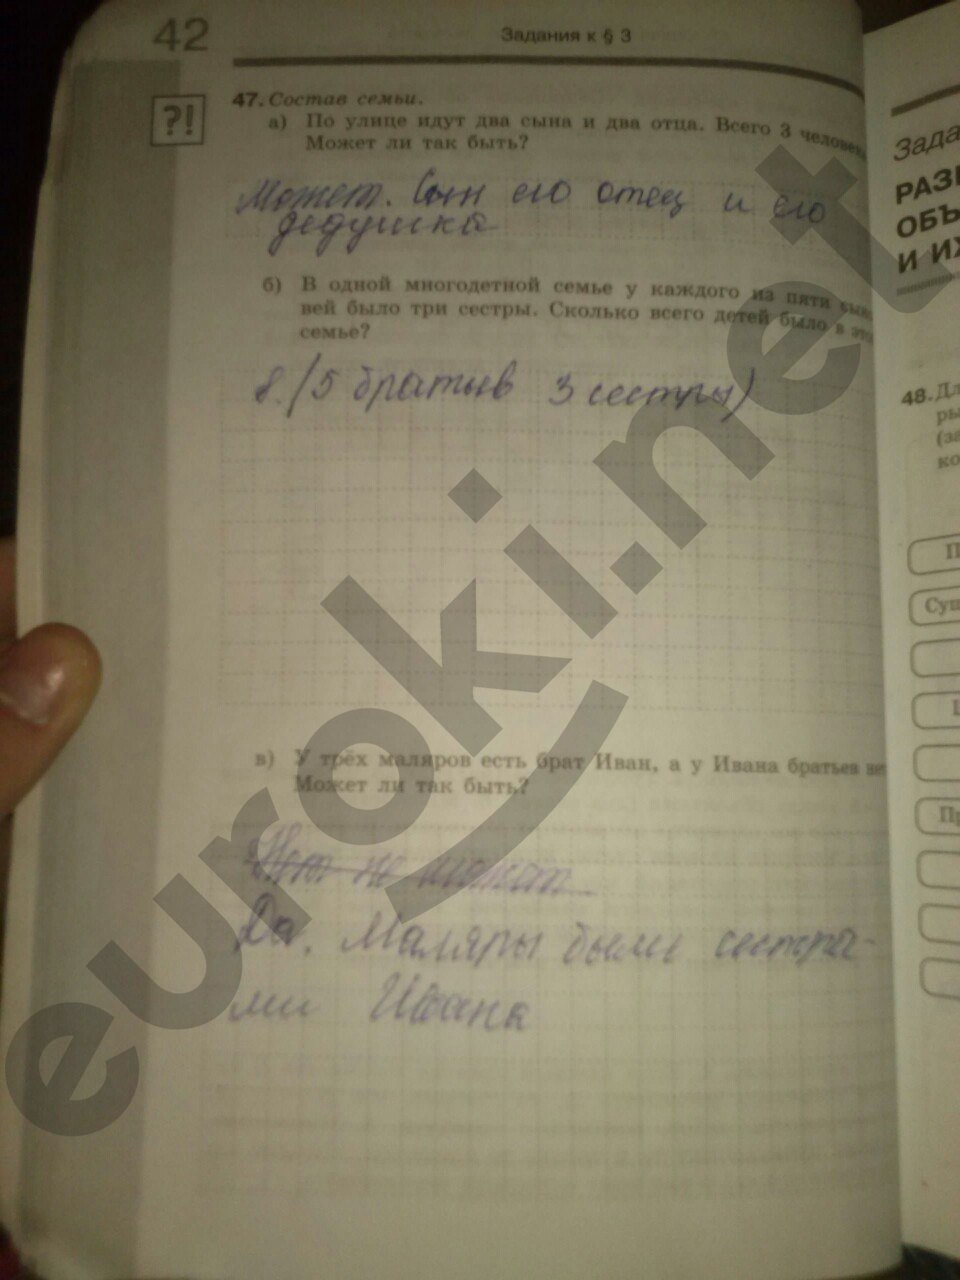 42
Задания к § 3
?!
47. Состав семьи.
а) По улице идут два сына и два отца. Всего 3 человека
Может ли так быть?
Может. Сын его отец и его
дедушка
б) В одной многодетной семье у каждого из пяти
вей было три сестры. Сколько всего детей было в
семье?
8. (5 братьыв 3 сестры)
в) У трёх маляров есть брат Иван, а у Ивана братьев
Может ли так быть?
Нет не может
Да. Маляры были сестра-
ми Ивана
Зада
РАЗ
ОБЪ
И ИХ
48. Дл
ры
(за
ко
П
Сущ
Пр
euroki.net